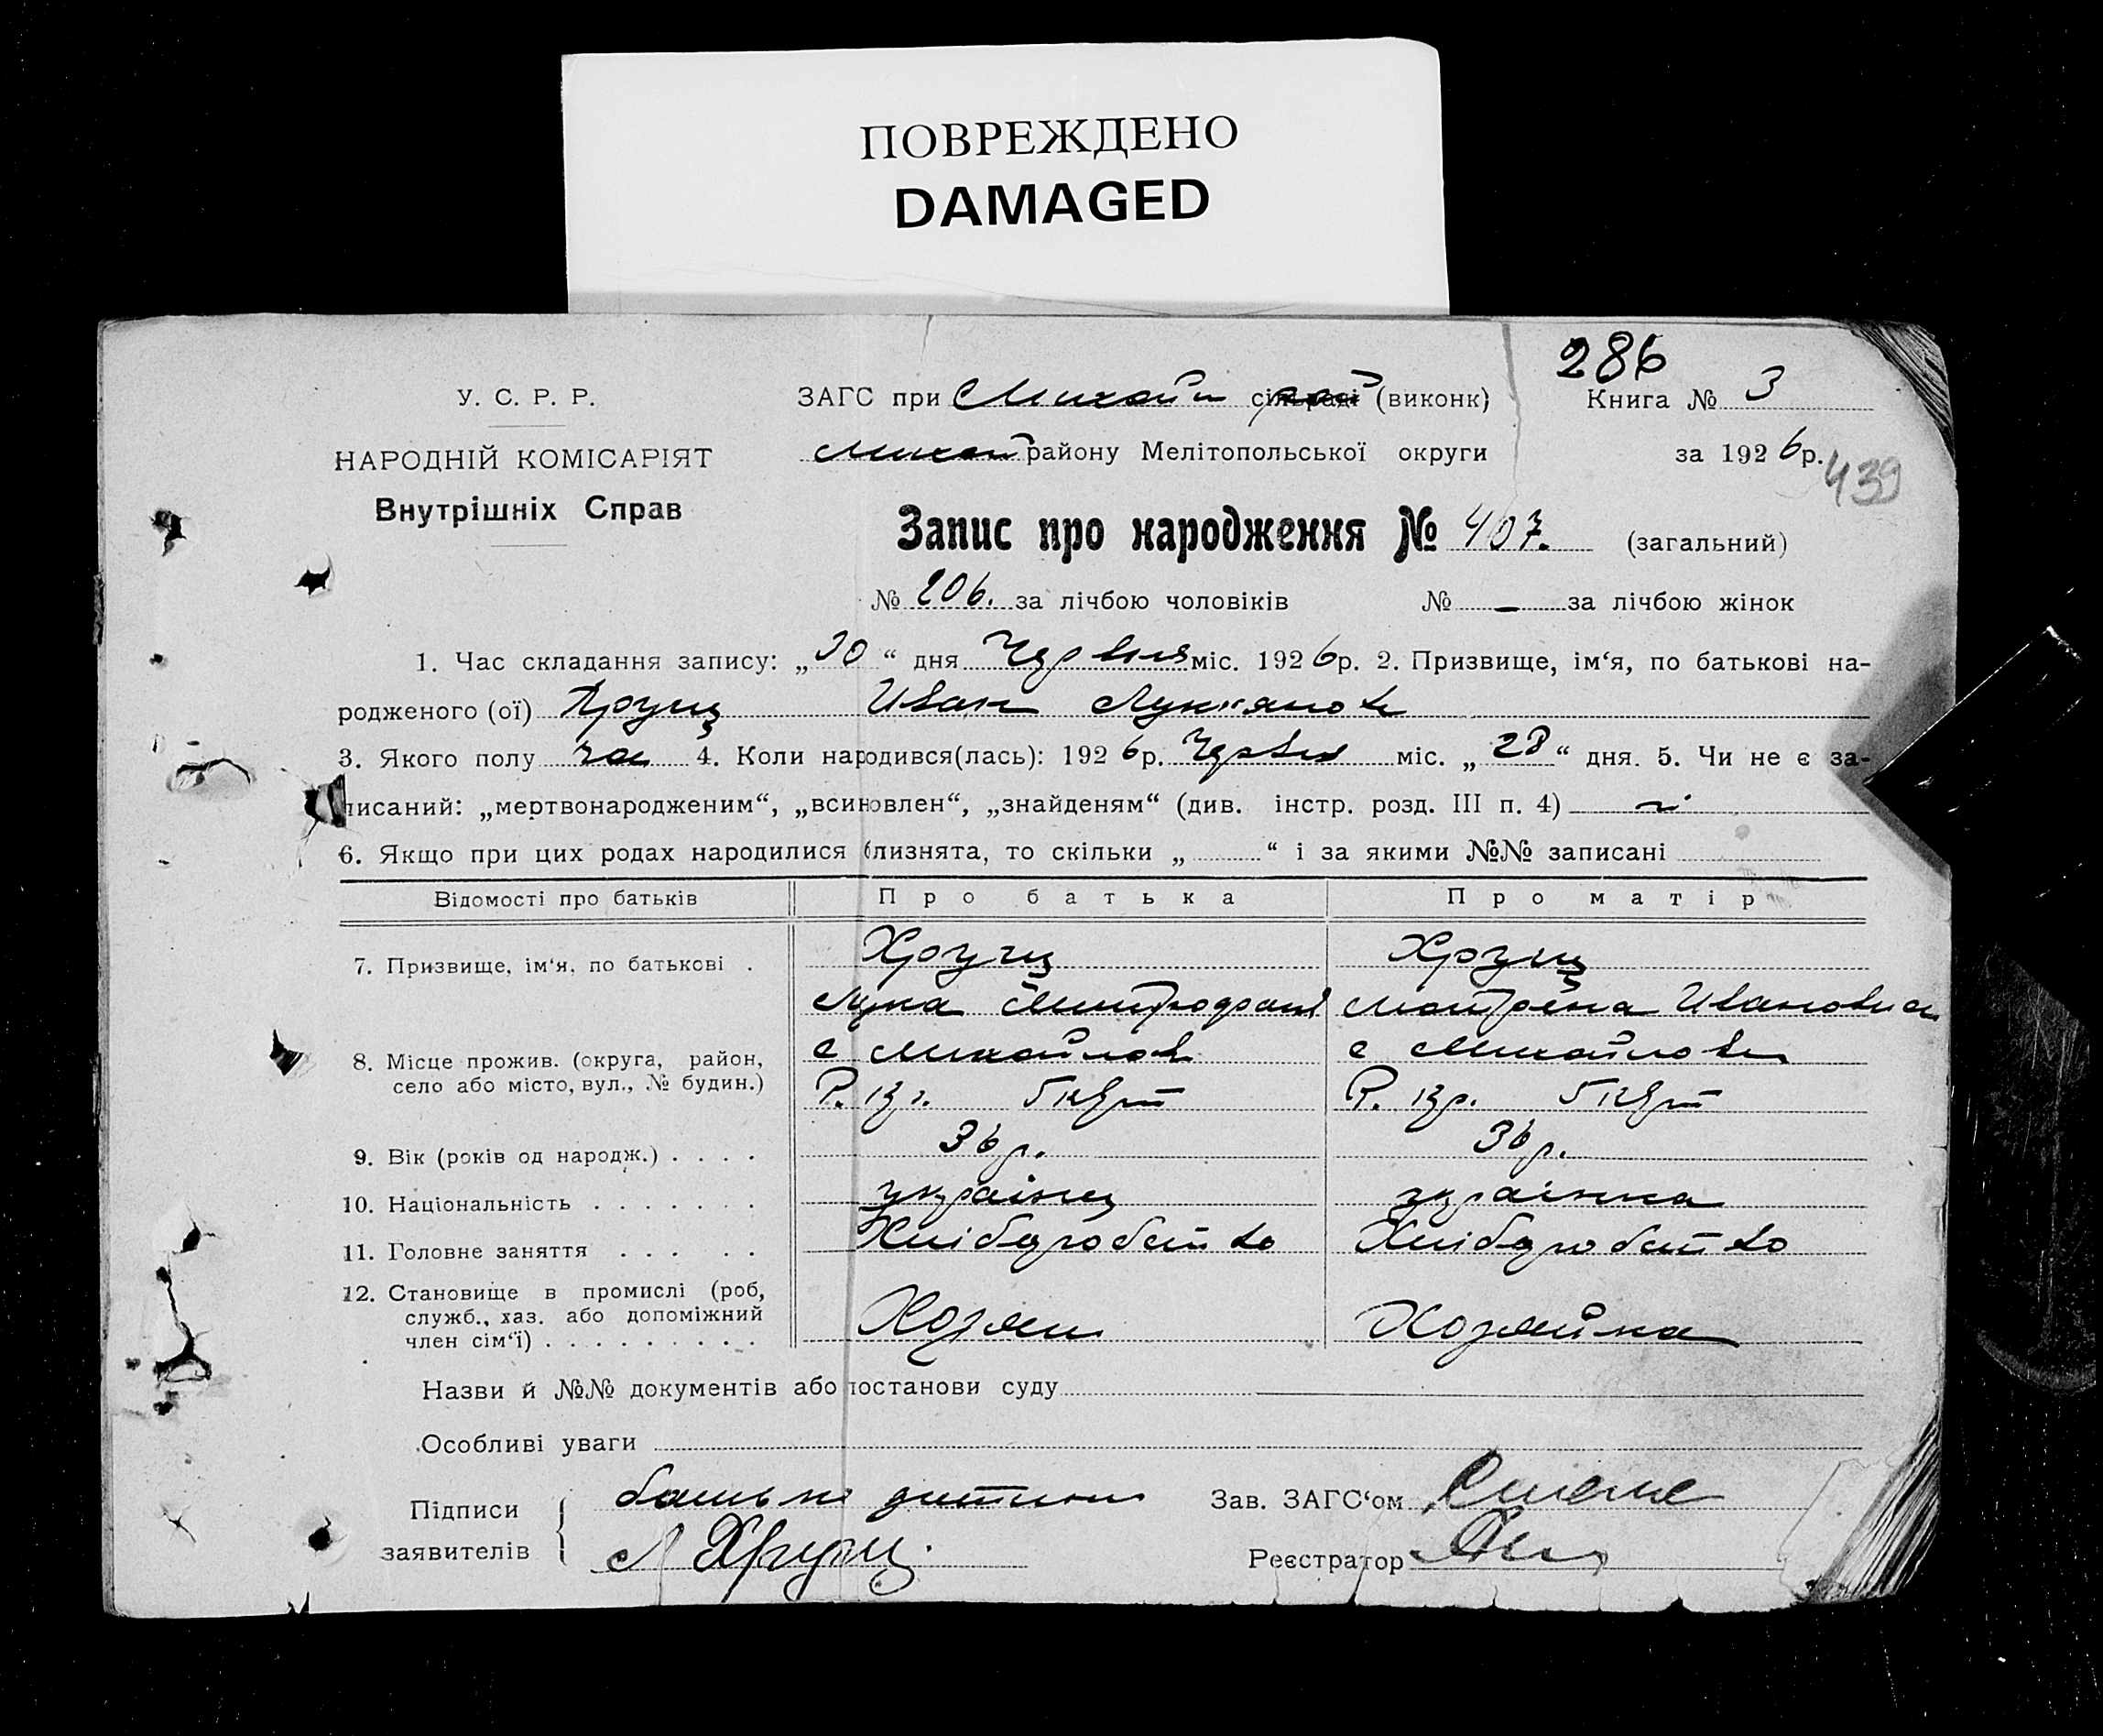 ПОВРЕЖДЕНО
DAMAGED
286
У. С. Р. Р.
ЗАГС при Михайл сільраді (виконк)
Книга № 3
НАРОДНІЙ КОМІСАРІЯТ
Михай району Мелітопольської округи
за 1926р.
439
Внутрішніх Справ
Запис про народження № 407. (загальний)
№ 206. за лічбою чоловіків № — за лічбою жінок
1. Час складання запису: „30“ дня Червня міс. 1926р. 2. Призвище, ім‘я, по батькові на-
родженого (ої) Хрущ Иван Лукъянов
3. Якого полу чол 4. Коли народився(лась): 1926р. Червня міс. „28“ дня. 5. Чи не є за-
писаний: „мертвонародженим“, „всиновлен“, „знайденям“ (див. інстр. розд. III п. 4) ні
6. Якщо при цих родах народилися близнята, то скільки „ “ і за якими №№ записані
Відомості про батьків Про батька Про матір
7. Призвище, ім‘я, по батькові . Хрущ Хрущ
Лука Мотрена Ивановна
8. Місце прожив. (округа, район, с Михайлов с Михайловц
село або місто, вул., № будин.)
9. Вік (років од народж.) . . . . 36 р. 36 р.
10. Національність . . . . . . . українец українка
11. Головне заняття . . . . . Хліборобство Хліборобство
12. Становище в промислі (роб,
служб., хаз. або допоміжний
член сім‘ї) . . . . . . . . . Хозяин Хозяйка
Назви й №№ документів або постанови суду
Особливі уваги
Підписи батько дитини Зав. ЗАГС‘ом
заявителів Л Хрущ. Реєстратор